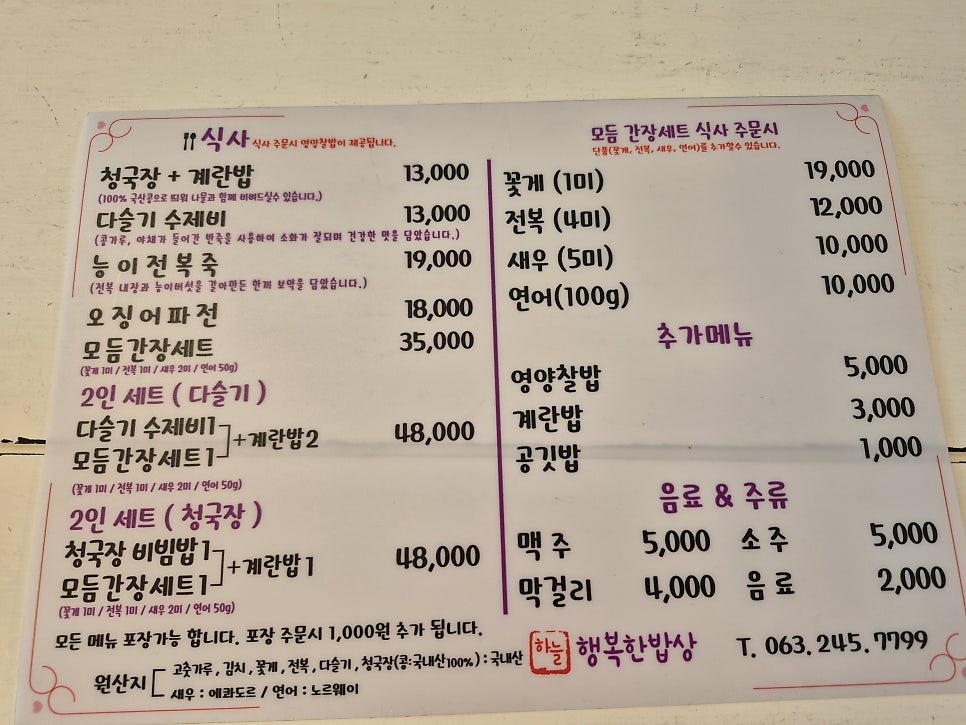 식사 식사 주문시 영양찰밥이 제공됩니다.
청국장 + 계란밥 13,000
(100% 국산콩으로 띄워 나물과 함께 비벼드실수 있습니다.)
다슬기 수제비 13,000
(콩가루, 야채가 들어간 반죽을 사용하여 소화가 잘되며 건강한 맛을 담았습니다.)
능이전복죽 19,000
(전복 내장과 능이버섯을 갈아만든 한끼 보약을 담았습니다.)
오징어파전 18,000
모듬간장세트 35,000
(꽃게 1미 / 전복 1미 / 새우 2미 / 연어 50g)
2인 세트 ( 다슬기 )
다슬기 수제비1
모듬간장세트1
+계란밥2 48,000
(꽃게 1미 / 전복 1미 / 새우 2미 / 연어 50g)
2인 세트 ( 청국장 )
청국장 비빔밥1
모듬간장세트1
+계란밥1 48,000
(꽃게 1미 / 전복 1미 / 새우 2미 / 연어 50g)
모듬 간장세트 식사 주문시
단품(꽃게, 전복, 새우, 연어)를 추가할수 있습니다.
꽃게 (1미) 19,000
전복 (4미) 12,000
새우 (5미) 10,000
연어(100g) 10,000
추가메뉴
영양찰밥 5,000
계란밥 3,000
공깃밥 1,000
음료 & 주류
맥주 5,000 소주 5,000
막걸리 4,000 음료 2,000
모든 메뉴 포장가능 합니다. 포장 주문시 1,000원 추가 됩니다.
원산지 고춧가루 , 김치 , 꽃게 , 전복 , 다슬기 , 청국장(콩:국내산100%) : 국내산
새우 : 에콰도르 / 연어 : 노르웨이
하늘 행복한밥상 T. 063. 245. 7799